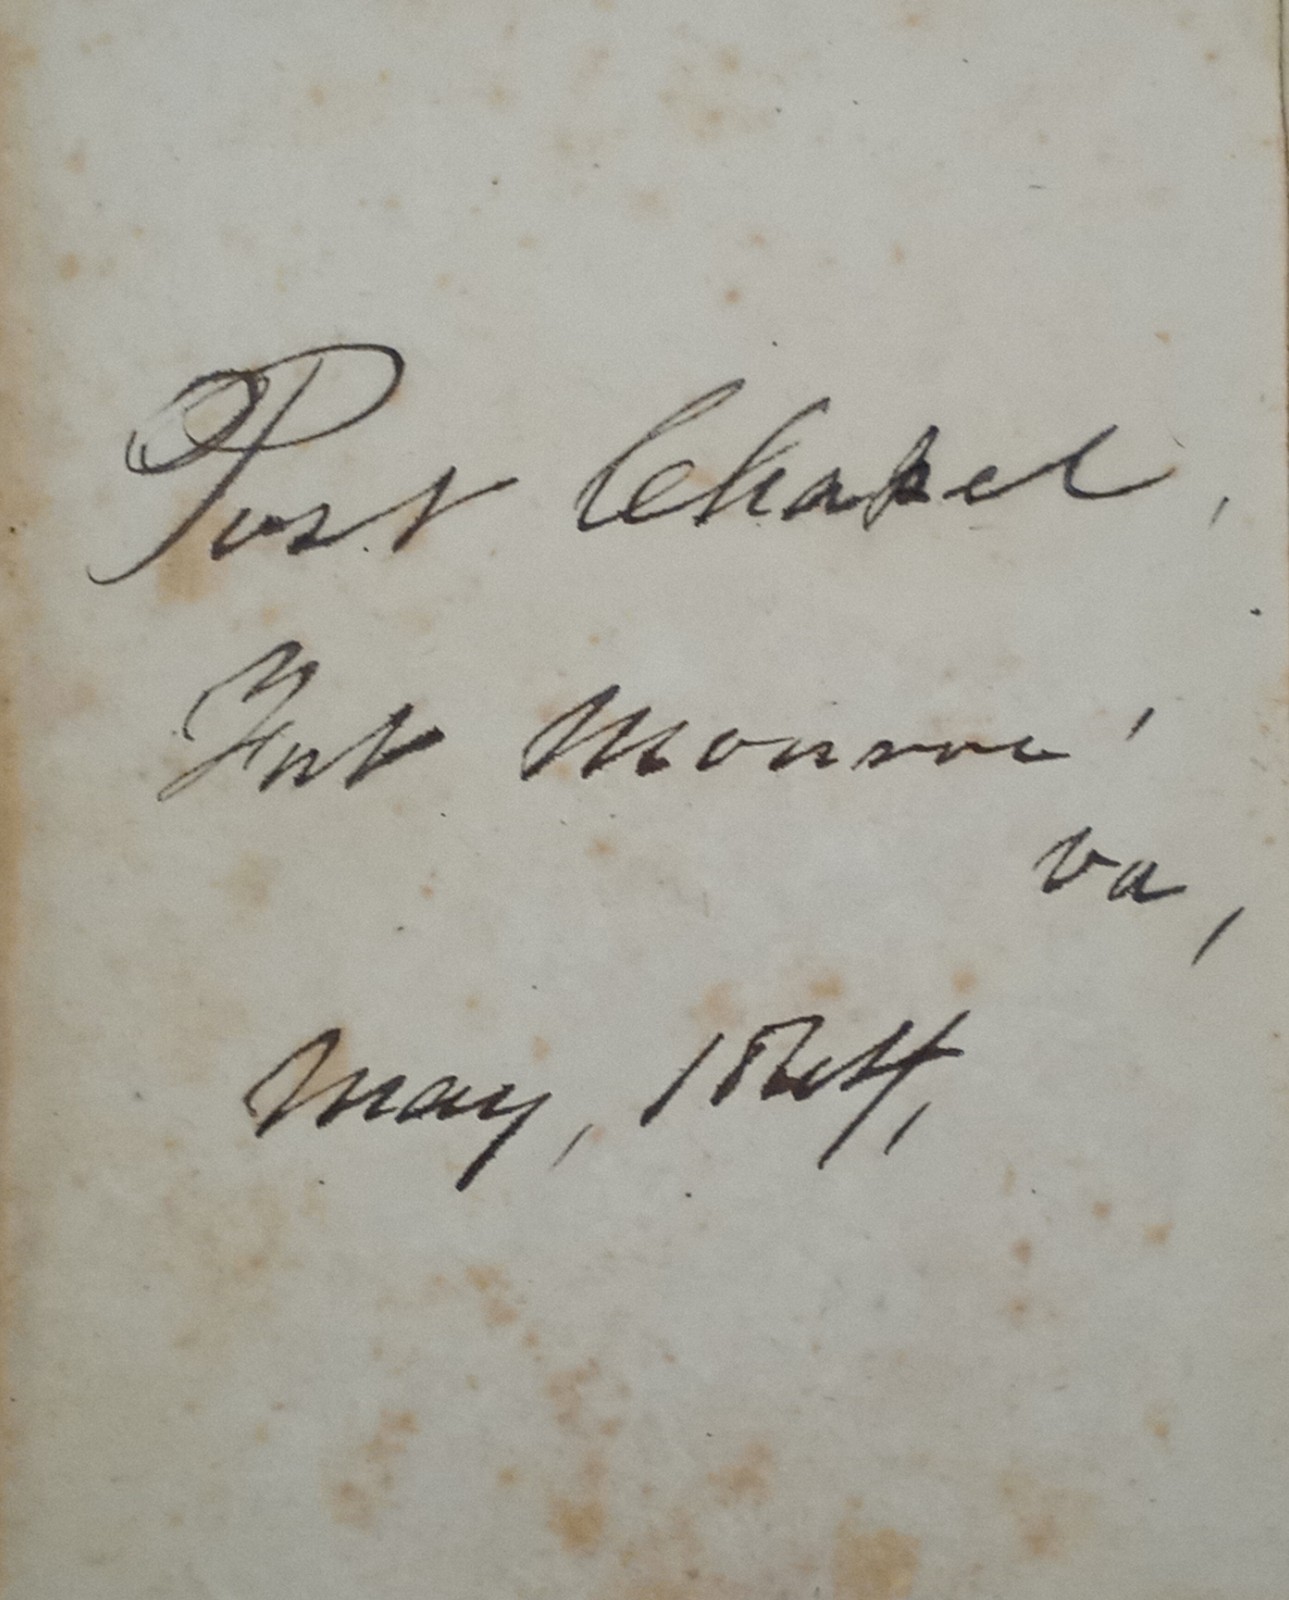 Post Chapel,
Fort Monroe
Va,
May, 1864,